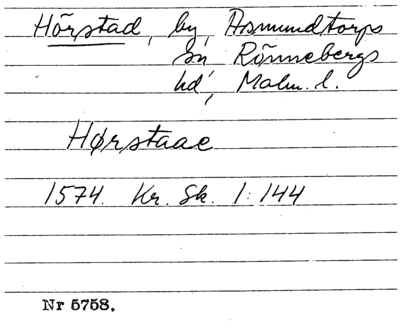 Hörstad, by, Asmundtorps
sn Rönnebergs
hd, Malm. l.
Hørstaae
1574. Kr. Sk. 1:144
Nr 5758.